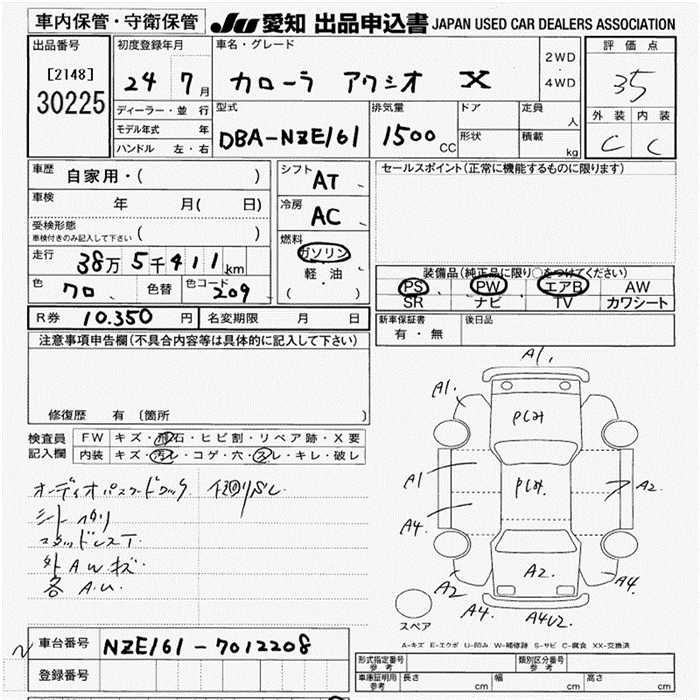 車内保管・守衛保管
JU 愛知 出品申込書 JAPAN USED CAR DEALERS ASSOCIATION
出品番号
[2148]
30225
初度登録年月
24 7月
ディーラー・並行
モデル年式 年
ハンドル 左・右
車名・グレード
カローラ アクシオ X
2WD
4WD
型式
DBA-NZE161
排気量
1500CC
ドア
形状
定員
人
積載
kg
評価点
35
外装 内装
C C
車歴 自家用・( )
車検 年 月( 日)
受検形態
車検付きのみ記入して下さい ( )
走行 38万5千411km
色 クロ、 色替 色コード 209
シフト AT、
冷房 AC、
燃料
ガソリン
軽・油、
( )
セールスポイント(正常に機能するものに限ります)
装備品(純正品に限り○をつけてください)
PS PW エアB AW
SR ナビ TV カワシート
R券 10.350 円 名変期限 月 日
新車保証書
有・無
後日品
注意事項申告欄(不具合内容等は具体的に記入して下さい)
修復歴 有 (箇所
検査員
記入欄
FW キズ・飛石・ヒビ割・リペア跡・X要
内装 キズ・汚レ・コゲ・穴・スレ・キレ・破レ
オーディオパスワードロック
シート
スタッドレスT
外AWキズ
各A.U.
A1,
A1.
A1
A4.
A2
A4.
A4U2.
A4.
A2.
A2.
スペア
A-キズ E-エクボ U-凹み W-補修跡 S-サビ C-腐食 XX-交換済
車台番号 NZE161-7012208
登録番号
形式指定番号
参考
類別区分番号
参考
車庫証明用
参考
長さ cm 幅 cm 高さ cm